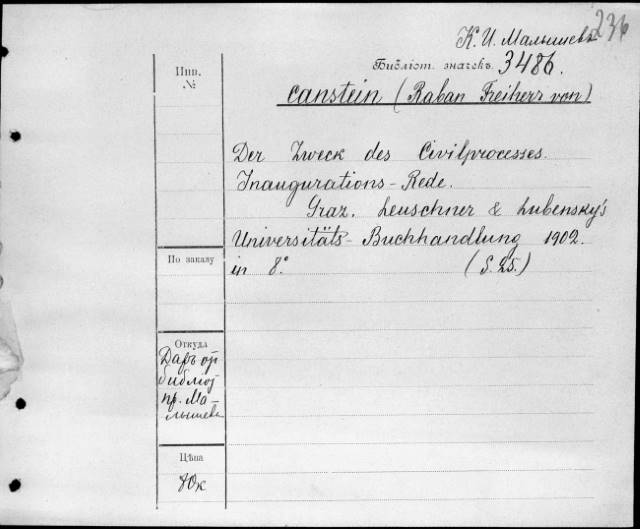 236
К. И. Малышевъ
Инв.
№
Библіот. значекъ 3486.
Canstein (Raban Freiherr von)
Der Zweck des Civilprocesses.
Inaugurations-Rede.
Graz, Leuschner & Lubensky's
Universitäts-Buchhandlung 1902.
По заказу
in 8.° (S. 25.)
Откуда
Даръ от
библіот
пр. Ма-
лышева
Цѣна
80к